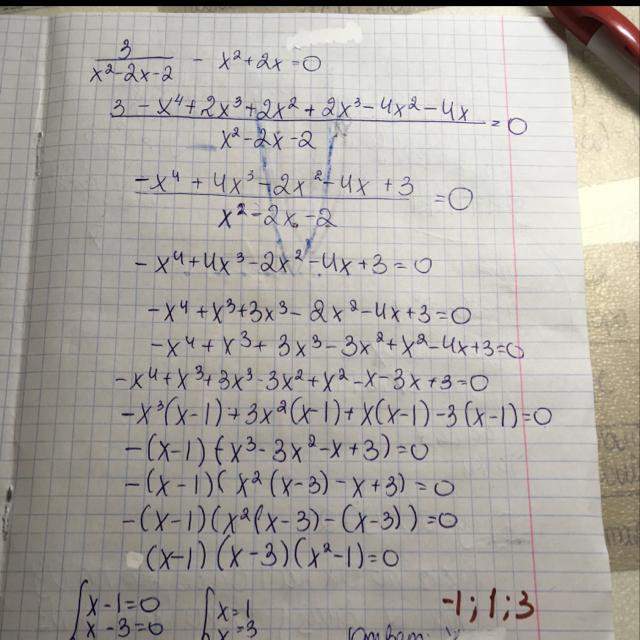 3/(x²-2x-2) - x²+2x=0
(3-x⁴+2x³+2x²+2x³-4x²-4x)/(x²-2x-2)=0
(-x⁴+4x³-2x²-4x+3)/(x²-2x-2)=0
-x⁴+4x³-2x²-4x+3=0
-x⁴+x³+3x³-2x²-4x+3=0
-x⁴+x³+3x³-3x²+x²-4x+3=0
-x⁴+x³+3x³-3x²+x²-x-3x+3=0
-x³(x-1)+3x²(x-1)+x(x-1)-3(x-1)=0
-(x-1)(x³-3x²-x+3)=0
-(x-1)(x²(x-3)-x+3)=0
-(x-1)(x²(x-3)-(x-3))=0
(x-1)(x-3)(x²-1)=0
x-1=0 x=1 -1;1;3
x-3=0 x=3